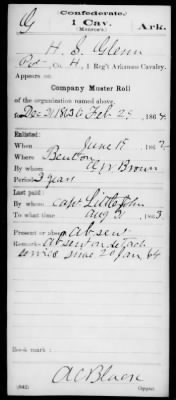 Confederate.
G
1 Cav.
Ark.
(Monroe's.)
H. S. Glenn
Pvt, Co. H, 1 Reg't Arkansas Cavalry.
Appears on
Company Muster Roll
of the organization named above,
for Dec 31 1863 to Feb 29, 1864.
Enlisted:
When June 18, 186
Where Benton
By whom A W Brown
Period 3 years
Last paid:
By whom Capt Littlejohn
To what time Aug 31, 1863
Present or absent absent
Remarks: absent on detach
service since 20 Jan 64
Book mark:
(642)
A C Black
Copyist.